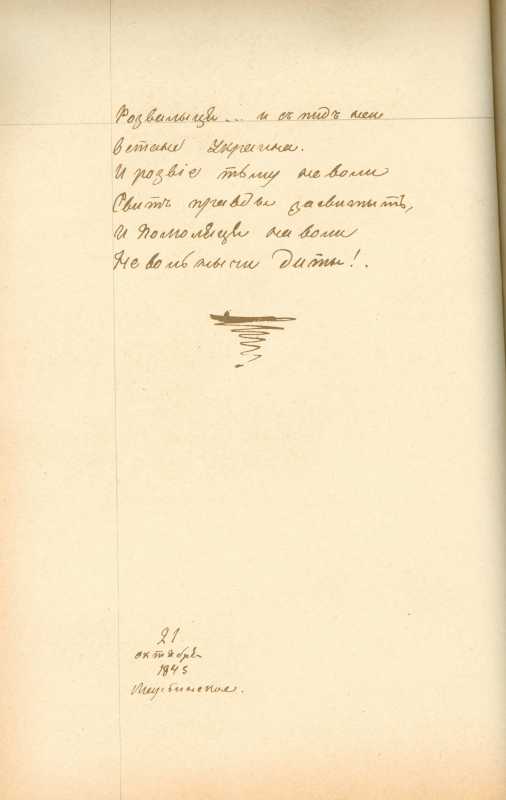 Розвалыця... и съ пидъ неи
Встане Украина.
И розвіе тьму неволи
Свитъ правды засвитыть,
И помоляця на воли
Невольнычи дИты!.
21
октября
1845
Марьинское.